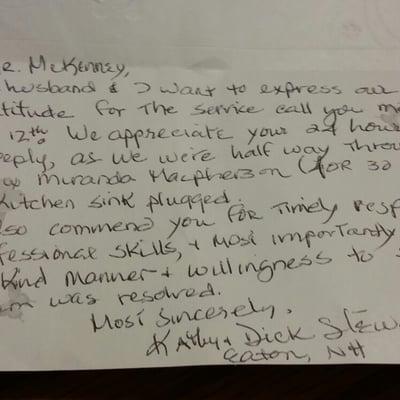 r. McKenney,
husband & I want to express our
titude for the service call you m
12th. We appreciate your 24 hour
eeply, as we were half way throu
Miranda Macpherson (for 30
Kitchen sink plugged.
lso commend you for timely resp
fessional skills, & most importantly
Kind manner & willingness to s
m was resolved.
Most sincerely,
Kathy & Dick Stew
Eaton, NH